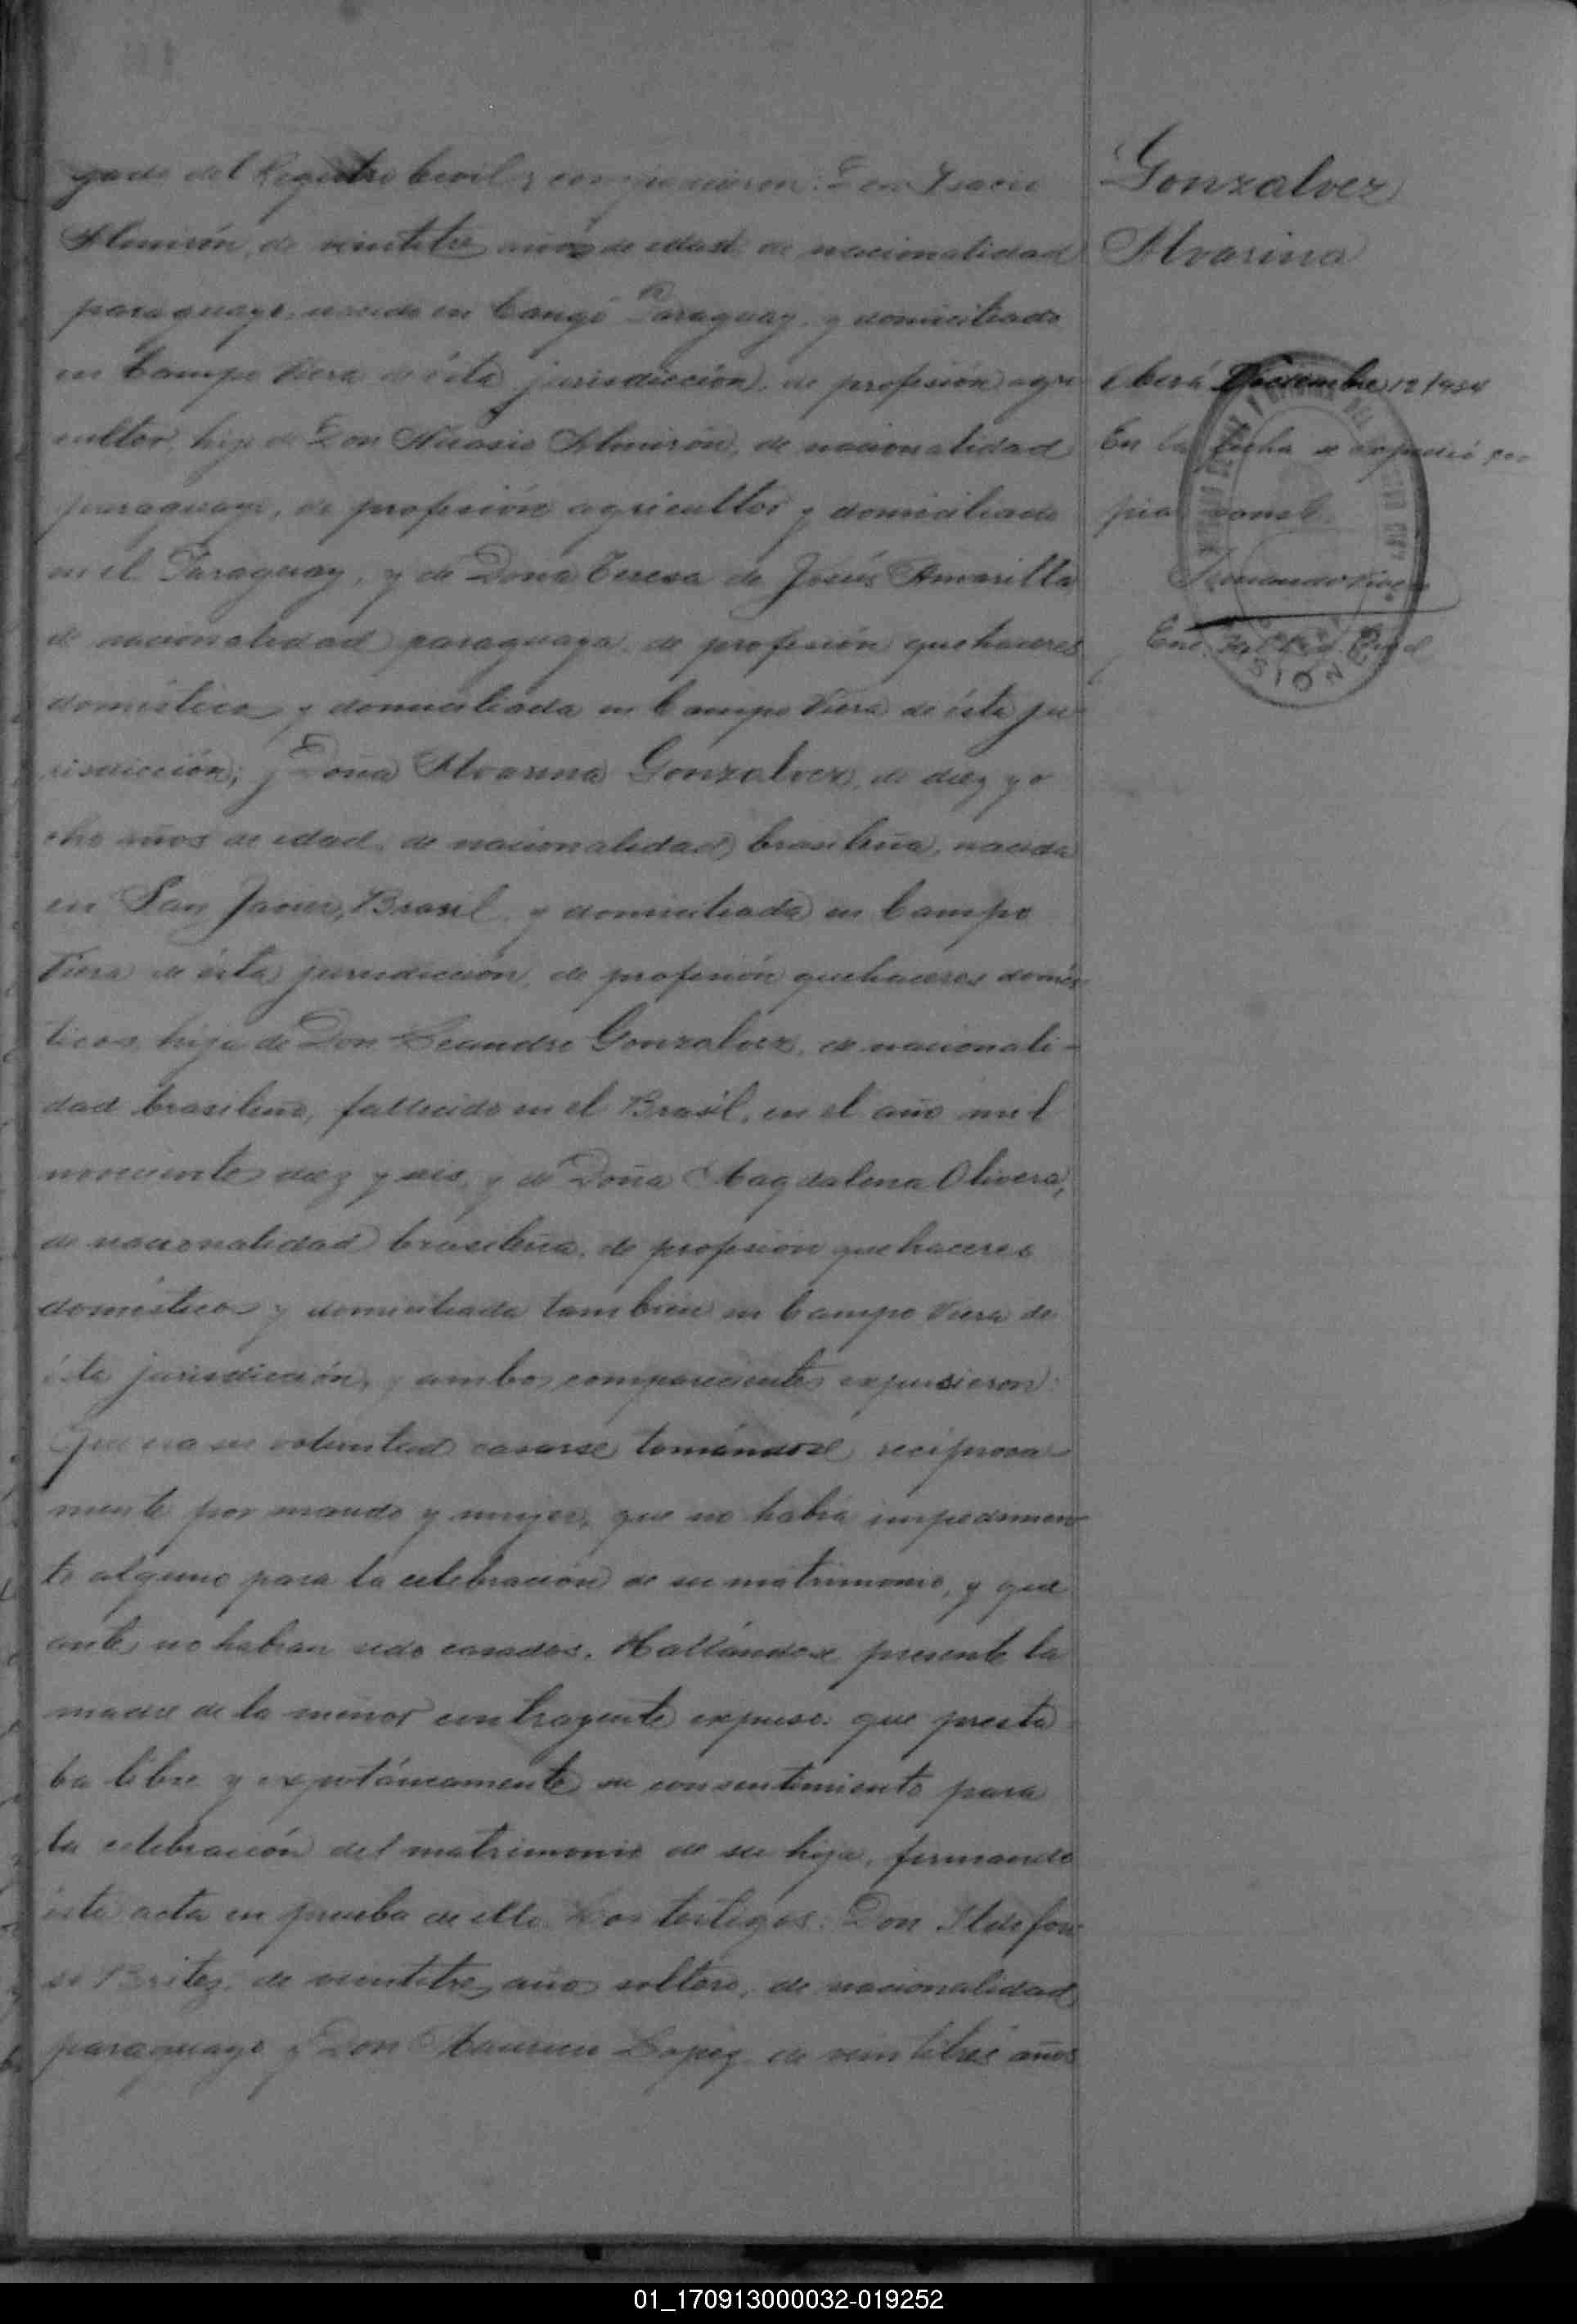 gado del Registro Civil, comparecieron: Don
Almirón, de veintitres años de edad, de nacionalidad
paraguayo, nacido en Cangó Paraguay, y domiciliado
en Campo Viera de ésta jurisdicción, de profesión agri
cultor, hijo de Don Nicasio Almirón, de nacionalidad
paraguayo, de profesión agricultor y domiciliado
en el Paraguay, y de Doña Teresa de Jesús Amarilla
de nacionalidad paraguaya, de profesión quehaceres
domésticos y domiciliada en Campo Viera de ésta ju
risdicción; y Doña Alvarina Gonzalvez, de diez y o
cho años de edad, de nacionalidad brasileña, nacida
en San Javier, Brasil y domiciliada en Campo
Viera de ésta jurisdicción, de profesión quehaceres domés
ticos, hija de Don Leandro Gonzalvez, de nacionali-
dad brasileño, fallecido en el Brasil, en el año mil
novecientos diez y seis, y de Doña Magdalena Olivera,
de nacionalidad brasileña, de profesión quehaceres
domésticos y domiciliada tambien en Campo Viera de
ésta jurisdicción, y ambos comparecientes expusieron:
Que era su voluntad casarse tomándose reciproca-
mente por marido y mujer, que no habia impedimen
to alguno para la celebracion de su matrimonio, y que
antes no habian sido casados. Hallándose presente la
madre de la menor contrayente expuso: que presta
ba libre y expotáneamente su consentimiento para
la celebración del matrimonio de su hija, firmando
ésta acta en prueba de ello. Los testigos: Don Ildefon
so Britez, de veintitres años soltero, de nacionalidad
paraguayo y Don Mauricio Lopez de veintitrés años
Gonzalvez
Alvarina
Oberá Diciembre 12/934
En la fecha se expidió co
pia
Enc. del Reg. Civil